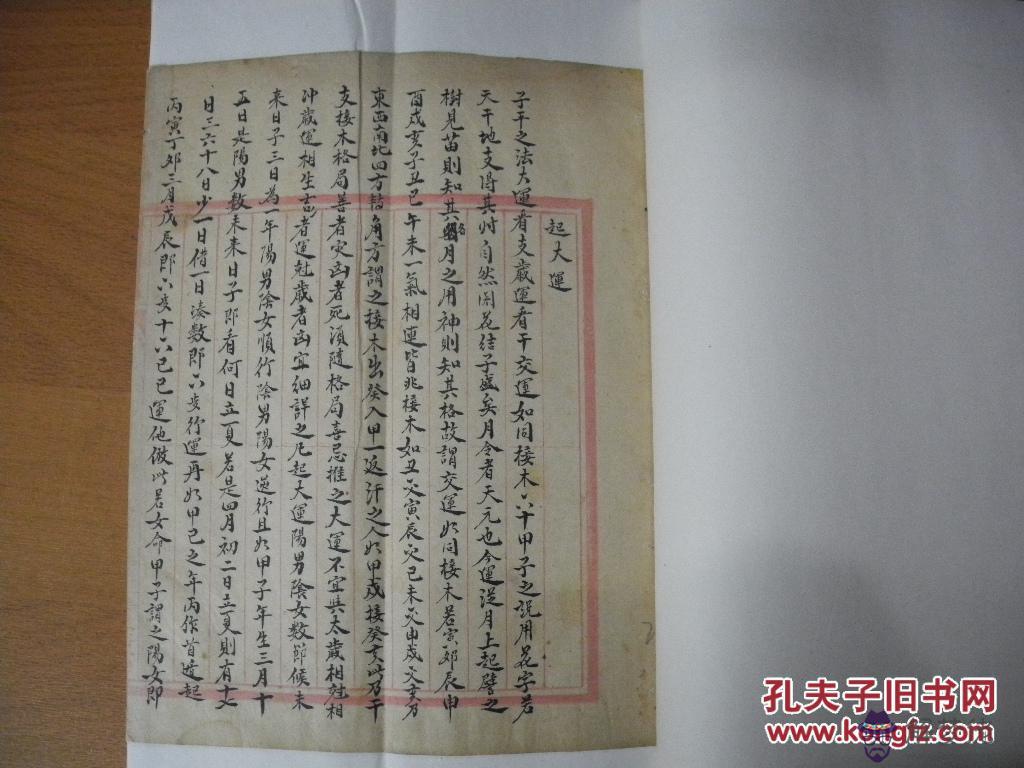 起大運
子平之法大運看支歲運看干交運如同接木六十甲子之說用花字若
天干地支得其时自然開花結子盛矣月令者天元也今運從月上起譬之
樹見苗則知其名月之用神則知其格故謂交運如同接木若寅卯辰申
酉戌亥子丑巳午未一氣相連皆非接木如丑交寅辰交巳未交申戌交亥乃
東西南北四方轉角方謂之接木出癸入甲一返汗之人如甲戌接癸亥此乃干
支接木格局善者灾凶者死須隨格局喜忌推之大運不宜與太歲相尅相
冲歲運相生吉者運尅歲者凶宜細詳之凡起大運陽男陰女數節候未
来日子三日為一年陽男陰女順行陰男陽女逆行且如甲子年生三月十
五日是陽男数未来日子即看何日立夏若是四月初二日立夏則有十七
日三六十八日少一日借一日湊數即六歲行運再如甲己之年丙作首遂起
丙寅丁卯三月戊辰即六歲十六己巳運他倣此若女命甲子謂之陽女即
孔夫子旧书网
www.kongfz.com